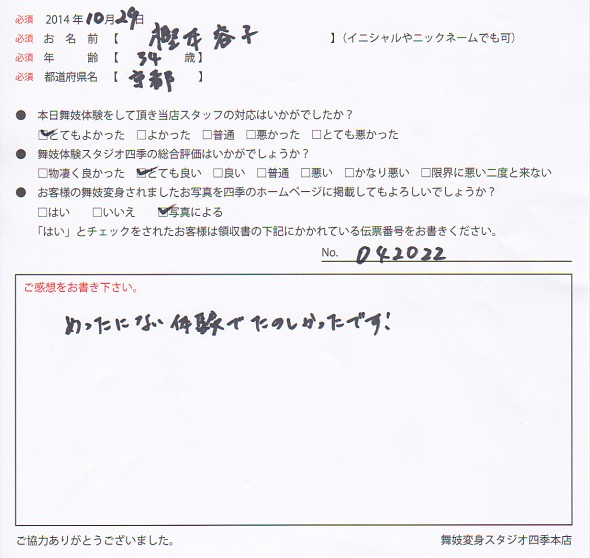 必須 2014年10月29日
必須 お名前【 樫本容子 】（イニシャルやニックネームでも可）
必須 年齢【 34 歳】
必須 都道府県名【 京都 】
● 本日舞妓体験をして頂き当店スタッフの対応はいかがでしたか？
☑とてもよかった □よかった □普通 □悪かった □とても悪かった
● 舞妓体験スタジオ四季の総合評価はいかがでしょうか？
□物凄く良かった ☑とても良い □良い □普通 □悪い □かなり悪い □限界に悪い二度と来ない
● お客様の舞妓変身されましたお写真を四季のホームページに掲載してもよろしいでしょうか？
□はい □いいえ ☑写真による
「はい」とチェックをされたお客様は領収書の下記にかかれている伝票番号をお書きください。
No. 042022
ご感想をお書き下さい。
めったにない体験でたのしかったです!
ご協力ありがとうございました。 舞妓変身スタジオ四季本店